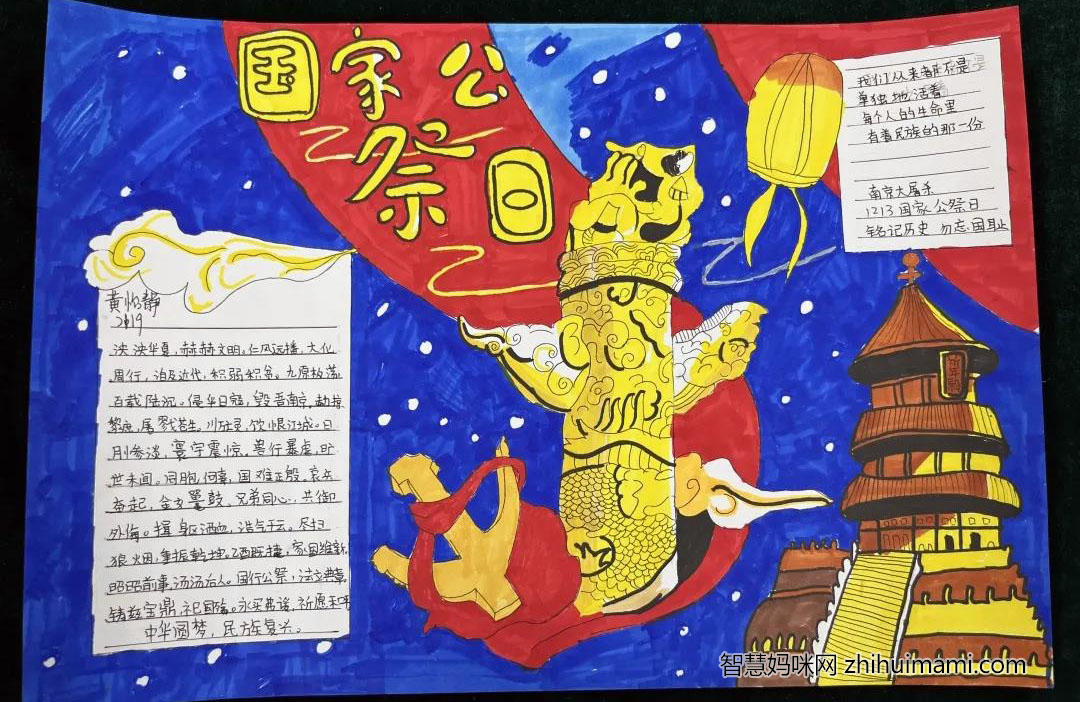 国家公
祭日
我们从来都不是
单独地活着
每个人的生命里
有着民族的那一份
南京大屠杀
1213国家公祭日
铭记历史 勿忘国耻
黄怡静
2019
泱泱华夏,赫赫文明。仁风远播,大化
周行,洎及近代,积弱积贫。九原板荡
百载陆沉。侵华日寇,毁吾南京,劫掠
黎庶,屠戮苍生。川妖灵,饮恨江城。日
月惨淡,寰宇震惊。兽行暴虐,旷
世未闻。同胞何辜,国难正殷。哀兵
奋起,金戈鼙鼓。兄弟同心,共御
外侮。捐躯洒血,浩气干云。尽扫
狼火烟,重振乾坤。乙酉既捷,家国维新
昭昭前事,汤汤后人。国行公祭,法立典章
铸兹宝鼎,祀国殇。永矢弗谖,祈愿和平
中华圆梦,民族复兴。
智慧妈咪网 zhihuimami.com